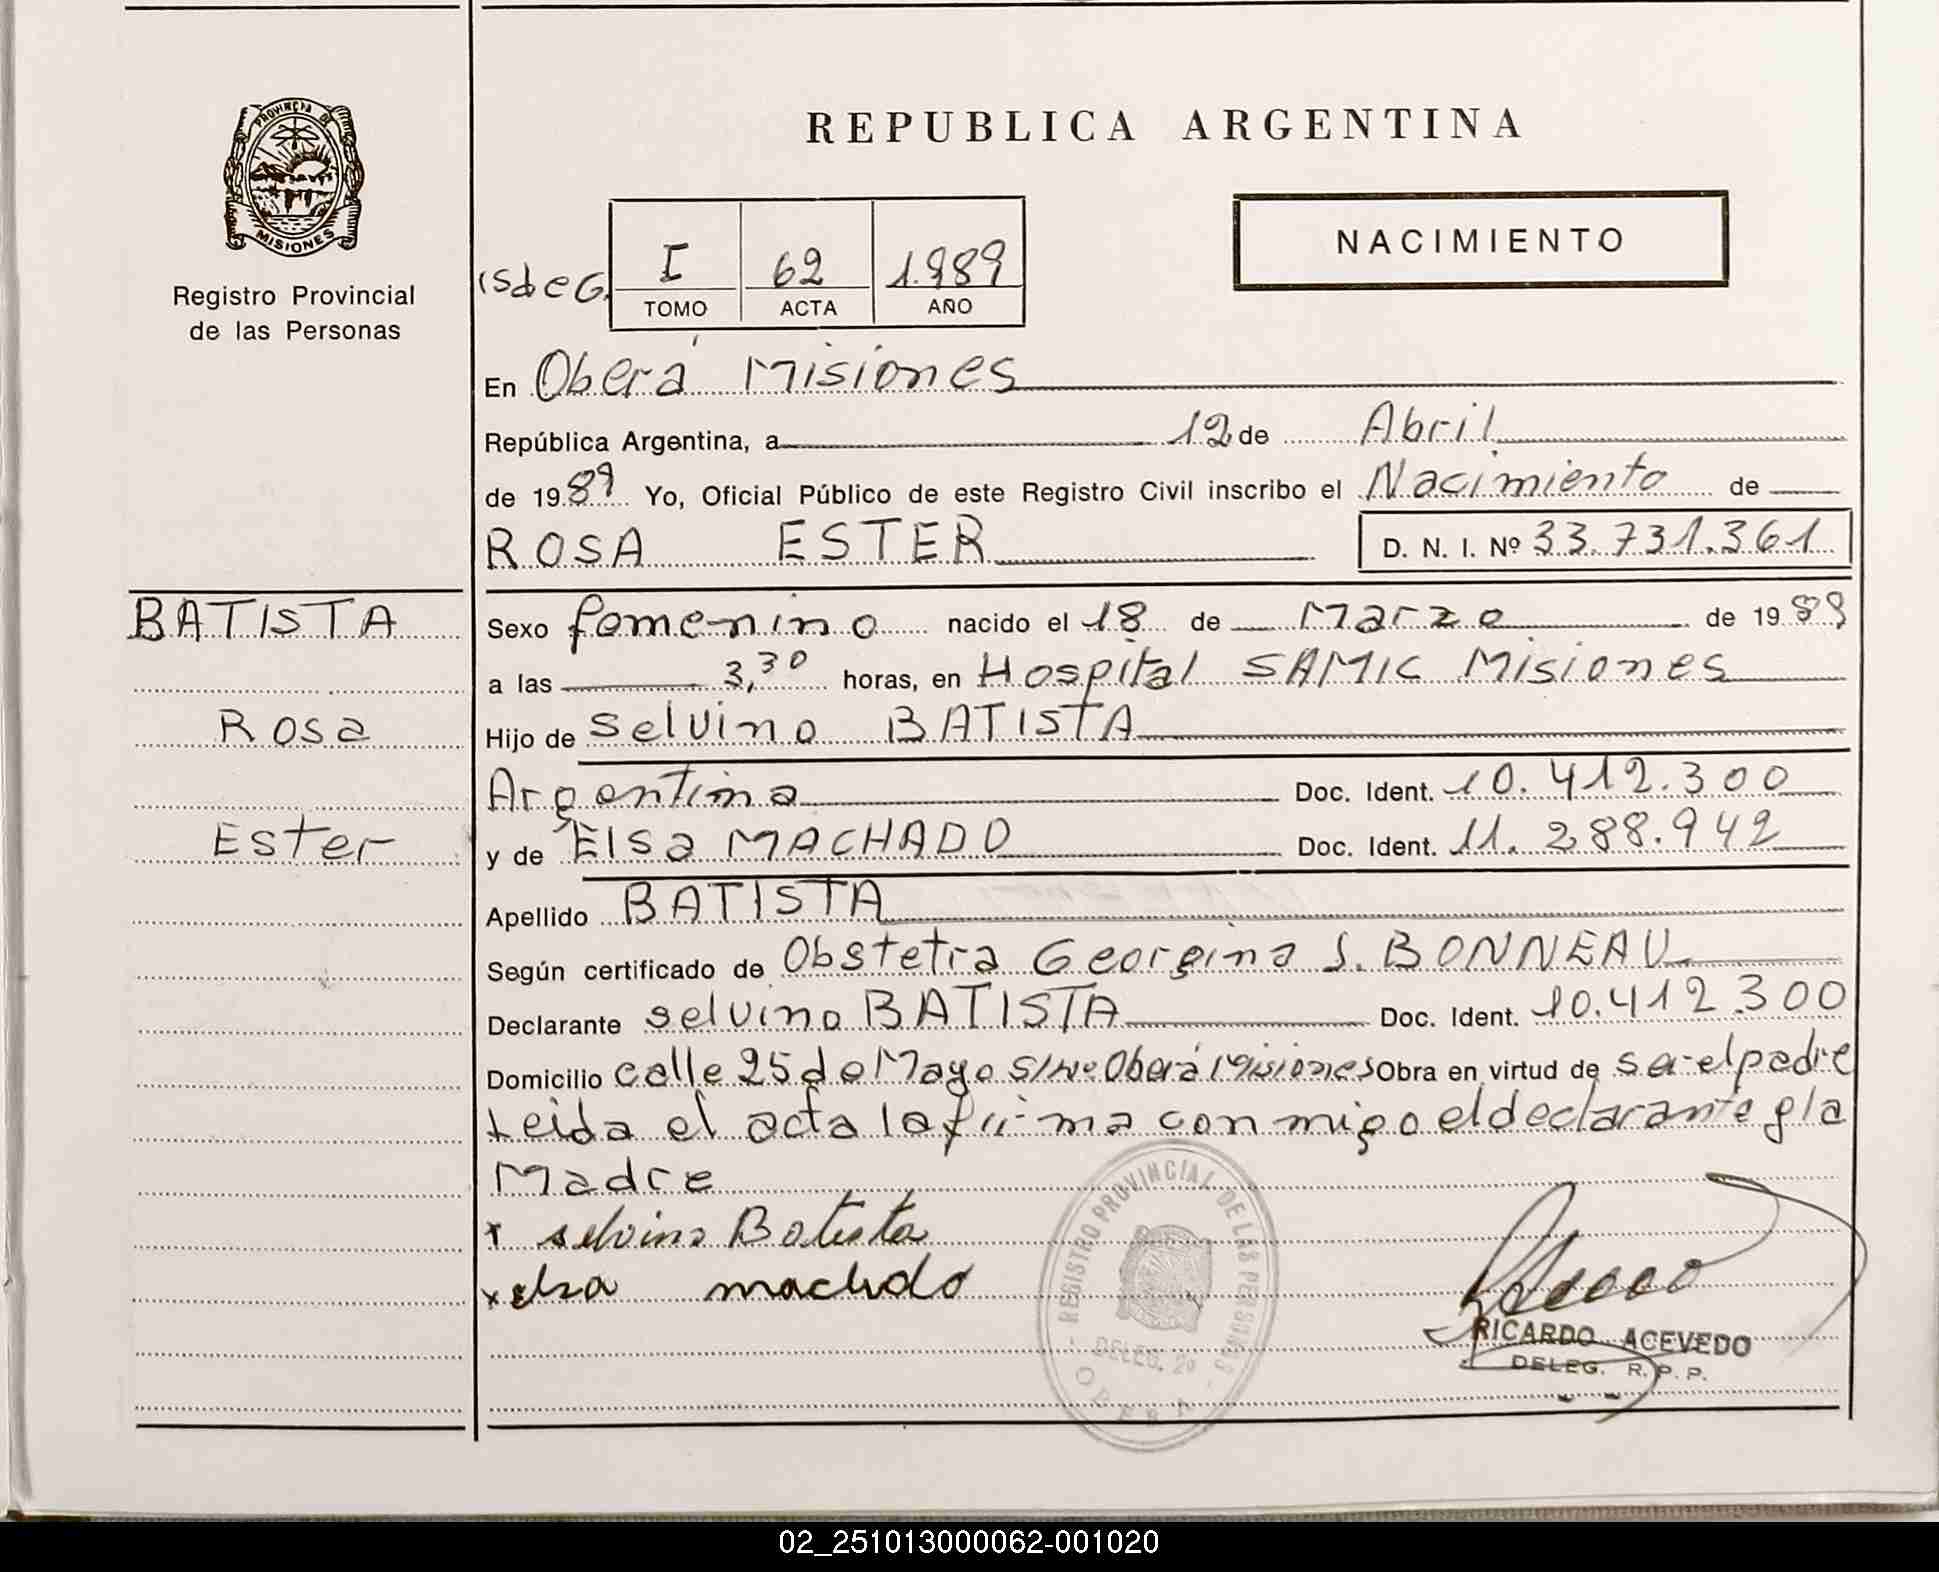 REPUBLICA ARGENTINA
PROVINCIA DE
MISIONES
Registro Provincial
de las Personas
NACIMIENTO
I 62 1.989
TOMO ACTA AÑO
En Oberá Misiones
República Argentina, a 12 de Abril
de 1989 Yo, Oficial Público de este Registro Civil inscribo el Nacimiento de
ROSA ESTER D. N. I. Nº 33.731.361
BATISTA
Rosa
Ester
Sexo femenino nacido el 18 de Marzo de 1989
a las 3,30 horas, en Hospital SAMIC Misiones
Hijo de Selvino BATISTA
Argentina Doc. Ident. 10.412.300
y de Elsa MACHADO Doc. Ident. 11.288.942
Apellido BATISTA
Según certificado de Obstetra Georgina S. BONNEAU
Declarante selvino BATISTA Doc. Ident. 10.412.300
Domicilio calle 25 de Mayo S/Nº Oberá Misiones Obra en virtud de ser el padre
Leida el acta la firma con migo el declarante y la
Madre
x selvino Batista
x elsa machado
REGISTRO PROVINCIAL DE LAS PERSONAS
DELEG. 2º
OBERA
RICARDO ACEVEDO
DELEG. R. P. P.
02_251013000062-001020